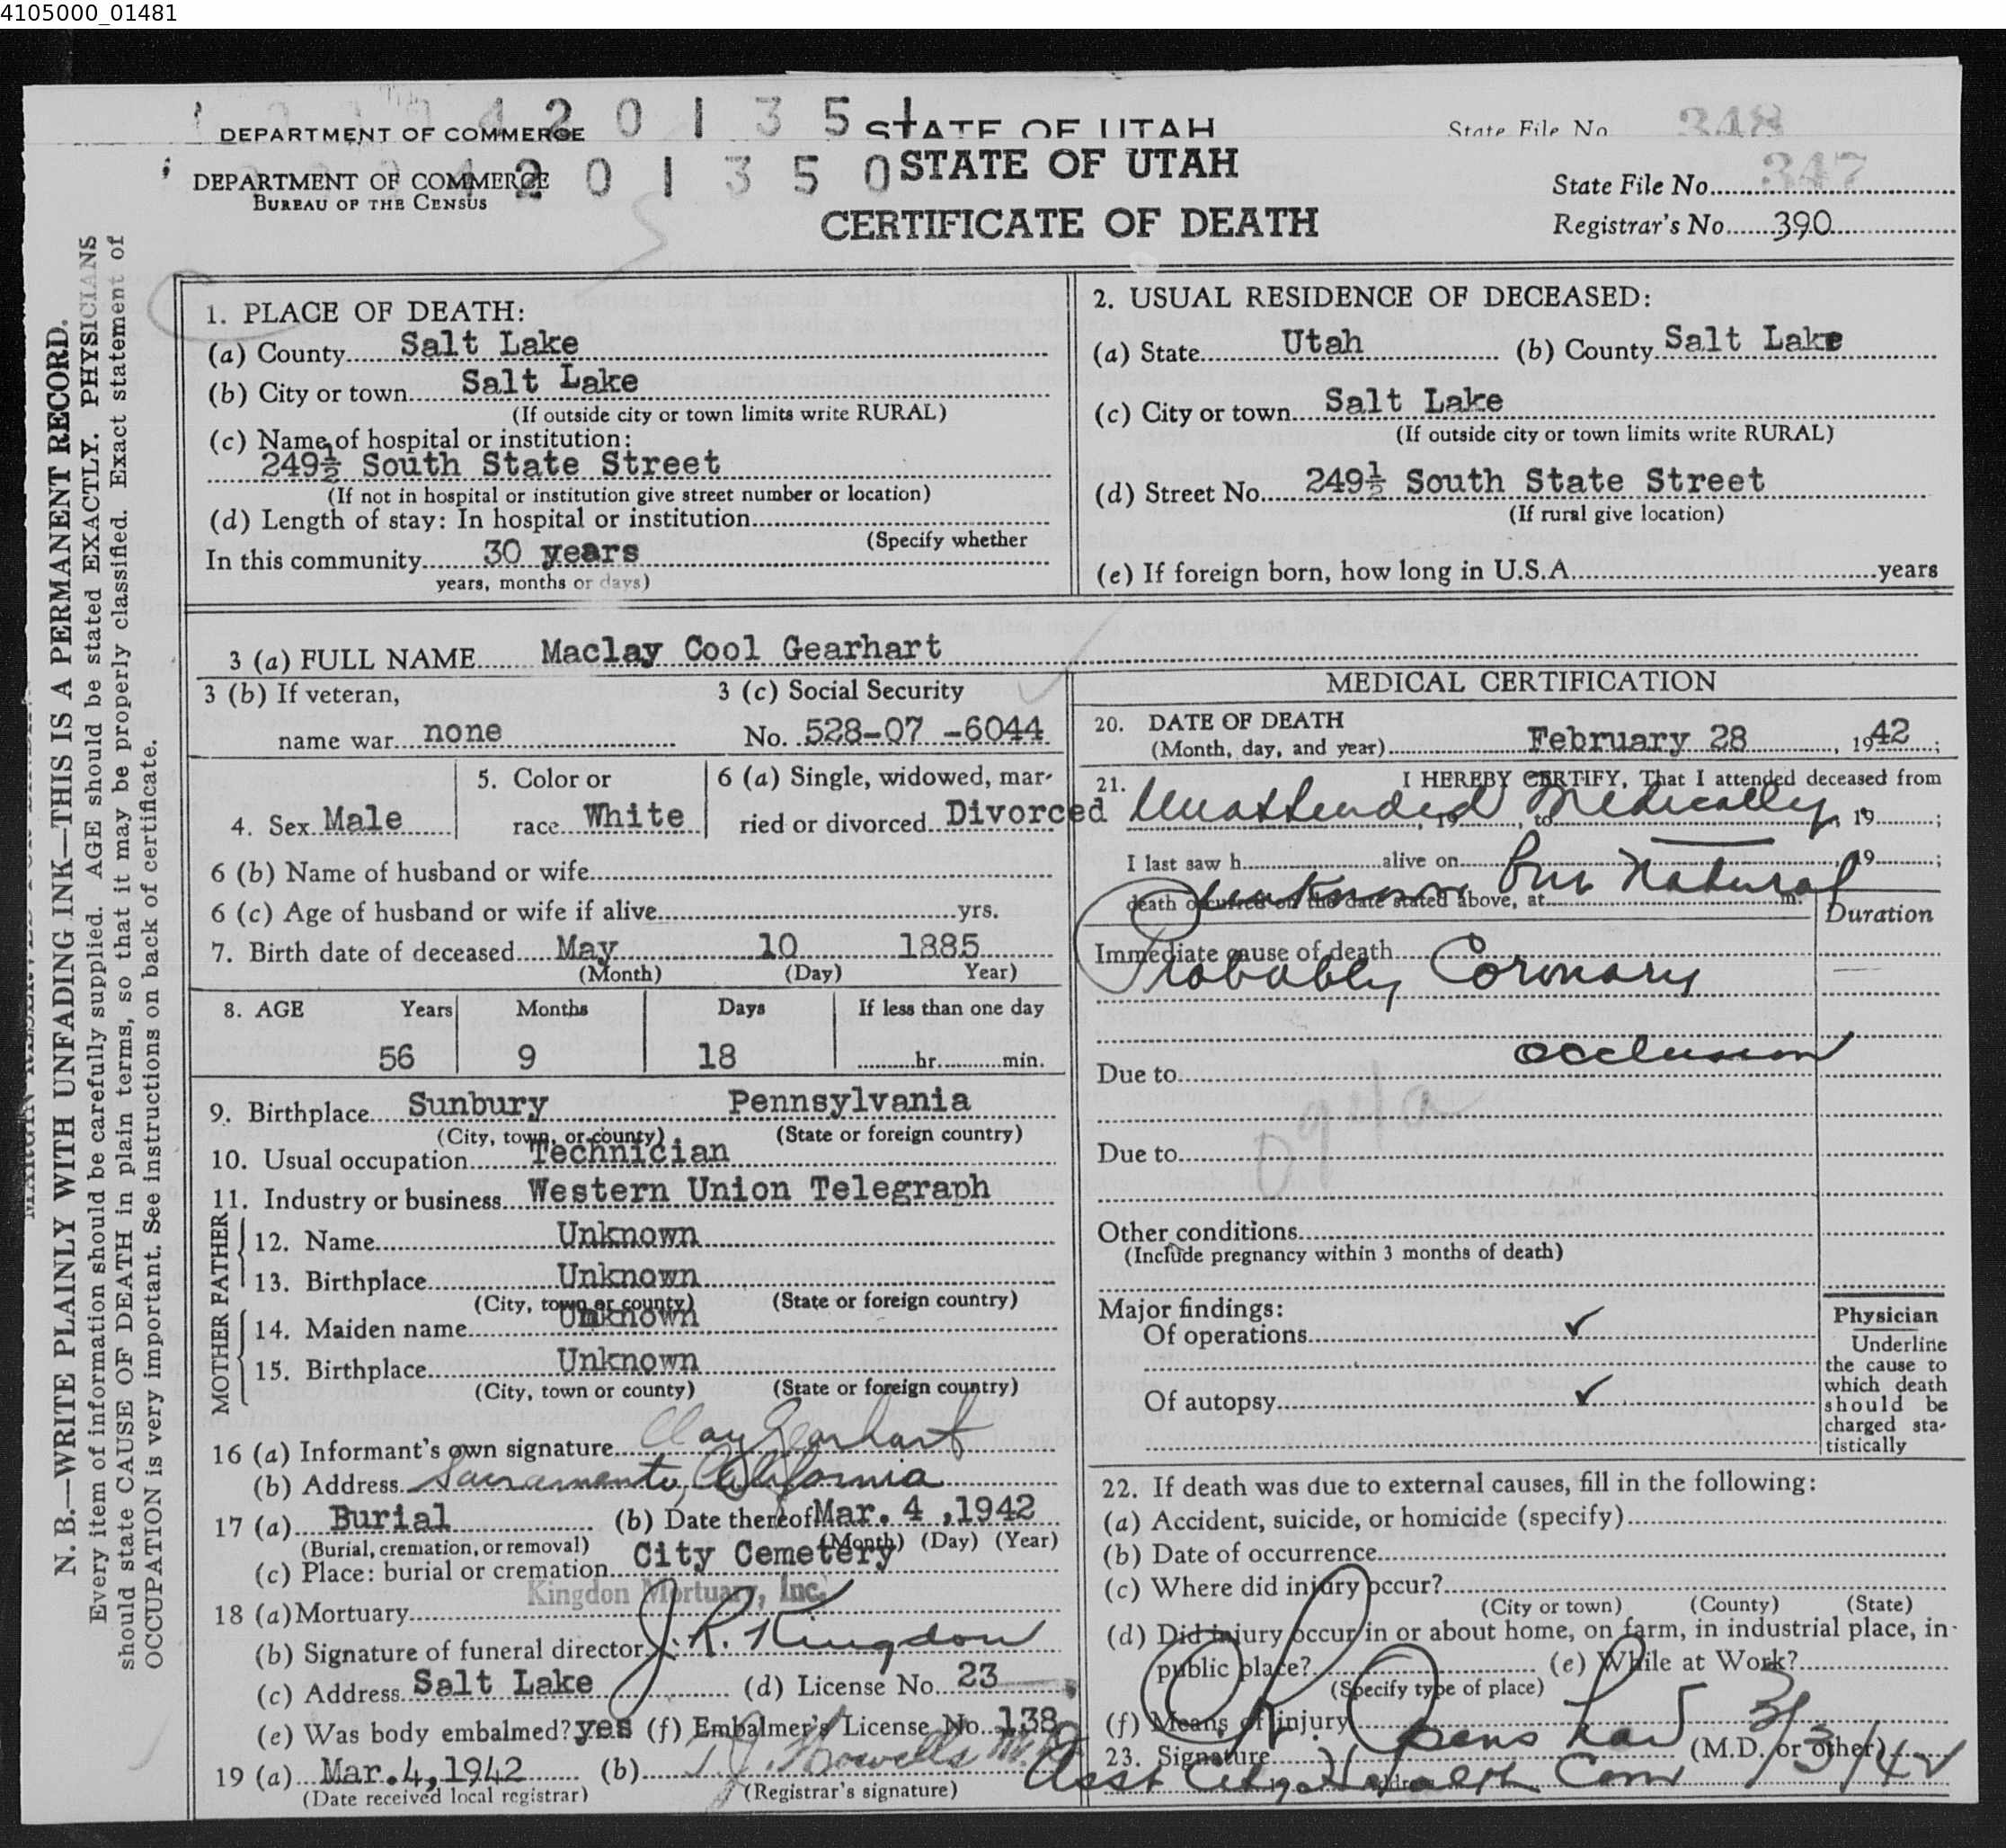 4105000_01481
DEPARTMENT OF COMMERCE 2 0 1 3 5 STATE OF UTAH State File No. 348
DEPARTMENT OF COMMERCE 2 0 1 3 5 0 STATE OF UTAH State File No. 347
BUREAU OF THE CENSUS
CERTIFICATE OF DEATH Registrar's No. 390
N. B.—WRITE PLAINLY WITH UNFADING INK—THIS IS A PERMANENT RECORD.
Every item of information should be carefully supplied. AGE should be stated EXACTLY. PHYSICIANS
should state CAUSE OF DEATH in plain terms, so that it may be properly classified. Exact statement of
OCCUPATION is very important. See instructions on back of certificate.
1. PLACE OF DEATH:
(a) County Salt Lake
(b) City or town Salt Lake
(If outside city or town limits write RURAL)
(c) Name of hospital or institution:
249½ South State Street
(If not in hospital or institution give street number or location)
(d) Length of stay: In hospital or institution
(Specify whether
In this community 30 years
years, months or days)
2. USUAL RESIDENCE OF DECEASED:
(a) State Utah (b) County Salt Lake
(c) City or town Salt Lake
(If outside city or town limits write RURAL)
(d) Street No. 249½ South State Street
(If rural give location)
(e) If foreign born, how long in U.S.A. years
3 (a) FULL NAME Maclay Cool Gearhart
3 (b) If veteran, 3 (c) Social Security
name war none No. 528-07 -6044
4. Sex Male 5. Color or race White 6 (a) Single, widowed, married or divorced Divorced
6 (b) Name of husband or wife
6 (c) Age of husband or wife if alive yrs.
7. Birth date of deceased May 10 1885
(Month) (Day) Year)
8. AGE Years Months Days If less than one day
56 9 18 hr. min.
9. Birthplace Sunbury Pennsylvania
(City, town, or county) (State or foreign country)
10. Usual occupation Technician
11. Industry or business Western Union Telegraph
FATHER
12. Name Unknown
13. Birthplace Unknown
(City, town or county) (State or foreign country)
MOTHER
14. Maiden name Unknown
15. Birthplace Unknown
(City, town or county) (State or foreign country)
16 (a) Informant's own signature Clay Gearhart
(b) Address Sacramento, California
17 (a) Burial (b) Date thereof Mar. 4 ,1942
(Burial, cremation, or removal) (Month) (Day) (Year)
(c) Place: burial or cremation City Cemetery
Kingdon Mortuary, Inc.
18 (a) Mortuary
(b) Signature of funeral director J. R. Kingdon
(c) Address Salt Lake (d) License No. 23
(e) Was body embalmed? yes (f) Embalmer's License No. 138
19 (a) Mar. 4, 1942 (b) Howells M.D.
(Date received local registrar) (Registrar's signature)
MEDICAL CERTIFICATION
20. DATE OF DEATH
(Month, day, and year) February 28, 1942;
21. I HEREBY CERTIFY, That I attended deceased from
Unattended Medically, 19 , to , 19 ;
I last saw h alive on , 19 ;
Unknown But Natural
death occurred on the date stated above, at m.
Duration
Immediate cause of death
Probably Coronary
occlusion
Due to
094a
Due to
Other conditions
(Include pregnancy within 3 months of death)
Major findings:
Of operations ✓
Of autopsy ✓
Physician
Underline
the cause to
which death
should be
charged sta-
tistically
22. If death was due to external causes, fill in the following:
(a) Accident, suicide, or homicide (specify)
(b) Date of occurrence
(c) Where did injury occur?
(City or town) (County) (State)
(d) Did injury occur in or about home, on farm, in industrial place, in
public place? (e) While at Work?
(Specify type of place)
(f) Means of injury
23. Signature (M.D. or other)
Asst City Health Com 3/3/42
Address